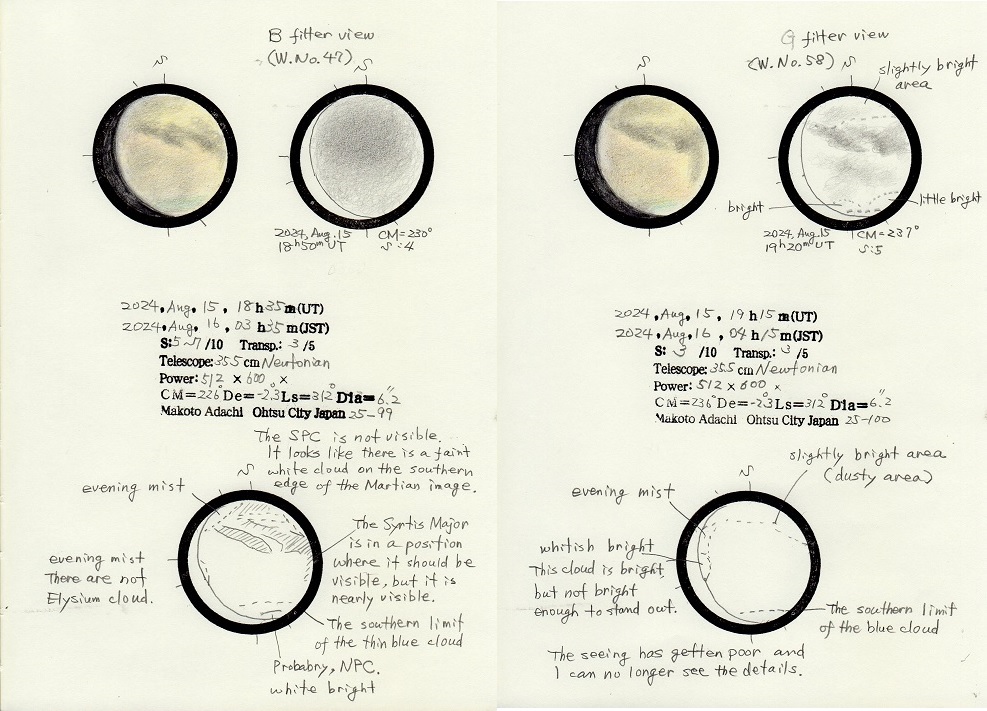 B filter view
(W.No.47)
S
S
2024, Aug. 15
18h50m UT
CM=230°
S:4
2024, Aug, 15, 18h35m(UT)
2024, Aug, 16, 03h35m(JST)
S:5~7/10 Transp.: 3/5
Telescope: 355cm Newtonian
Power: 512 × 600 ×
CM=226° De=-2.3 Ls=312° Dia=6.2"
Makoto Adachi Ohtsu City Japan 25-99
The SPC is not visible.
It looks like there is a faint
white cloud on the southern
edge of the Martian image.
S
evening mist
The Syrtis Major
is in a position
where it should be
visible, but it is
nearly visible.
evening mist
There are not
Elysium cloud.
The southern limit
of the thin blue cloud
Probabry, NPC.
white bright
G filter view
(W.No.58)
S
S
slightly bright
area
bright
little bright
2024, Aug.15
19h20m UT
CM=237°
S:5
2024, Aug, 15, 19h15m(UT)
2024, Aug, 16, 04h15m(JST)
S: 3/10 Transp.: 3/5
Telescope: 355cm Newtonian
Power: 512 × 600 ×
CM=236° De=-2.3 Ls=312° Dia=6.2"
Makoto Adachi Ohtsu City Japan 25-100
slightly bright area
(dusty area)
S
evening mist
whitish bright
This cloud is bright,
but not bright
enough to stand out.
The southern limit
of the blue cloud
The seeing has gotten poor and
I can no longer see the details.